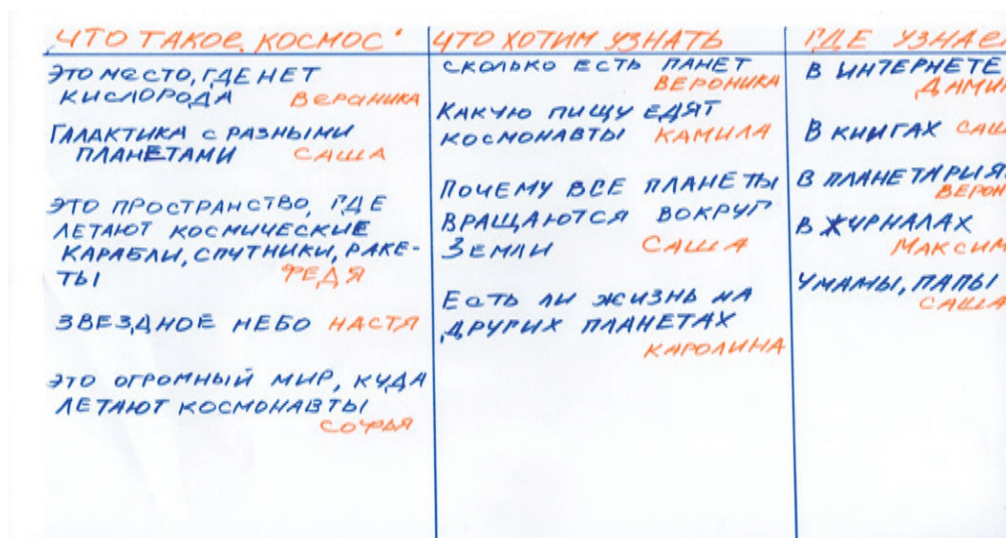 ЧТО ТАКОЕ КОСМОС
ЭТО МЕСТО, ГДЕ НЕТ
КИСЛОРОДА ВЕРОНИКА
ГАЛАКТИКА С РАЗНЫМИ
ПЛАНЕТАМИ САША
ЭТО ПРОСТРАНСТВО, ГДЕ
ЛЕТАЮТ КОСМИЧЕСКИЕ
КАРАБЛИ, СПУТНИКИ, РАКЕ-
ТЫ ФЕДЯ
ЗВЕЗДНОЕ НЕБО НАСТЯ
ЭТО ОГРОМНЫЙ МИР, КУДА
ЛЕТАЮТ КОСМОНАВТЫ
СОФЬЯ
ЧТО ХОТИМ УЗНАТЬ
СКОЛЬКО ЕСТЬ ПАНЕТ
ВЕРОНИКА
КАКУЮ ПИЩУ ЕДЯТ
КОСМОНАВТЫ КАМИЛА
ПОЧЕМУ ВСЕ ПЛАНЕТЫ
ВРАЩАЮТСЯ ВОКРУГ
ЗЕМЛИ САША
ЕСТЬ ЛИ ЖИЗНЬ НА
ДРУГИХ ПЛАНЕТАХ
КАРОЛИНА
ГДЕ УЗНАЕ
В ИНТЕРНЕТЕ
ДАМИ
В КНИГАХ САШ
В ПЛАНЕТАРИЯ
ВЕРОН
В ЖУРНАЛАХ
МАКСИМ
У МАМЫ, ПАПЫ
САША